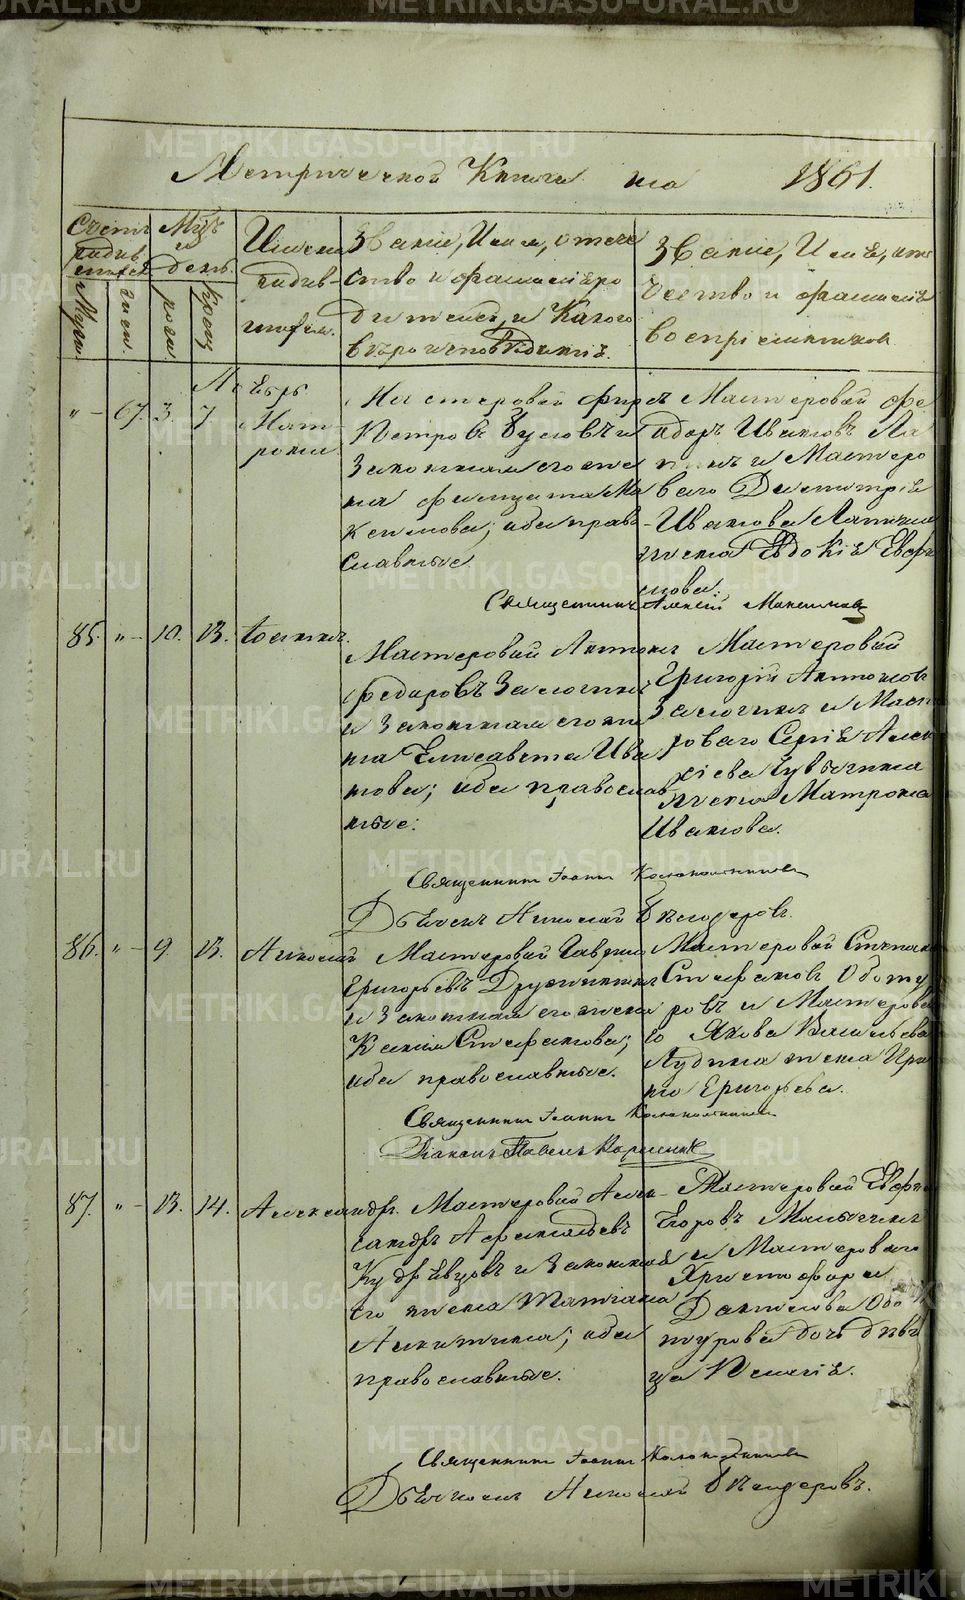 Метрической Книги на 1861.
Счетъ родив
шихся
Мцъ
и
день.
Имена
родив-
шихся.
Званіе, Имя, отече
ство и фамилія ро
дителей, и Какого
вѣроисповѣданія.
Званіе, Имя, оте
чество и фамилія
воспріемниковъ
Муж.
жен.
рожд.
Крещ.
Ноябрь
" 67. 3. 7
Мат
рона
Мастеровой Фирсъ
Петровъ Гусевъ и
Законная его же
на
кимова; оба право
славные
Мастеровой Фе
доръ Ивановъ Ла
и Мастеро
ваго Димитрія
Иванова
жена Евдокія Евфи
мова.
Священникъ Алексій Максимовъ
85. " 10. 13. Іоаннъ.
Мастеровой Антонъ
Федоровъ
и Законная его же
на Елисавета Ива
нова; оба православ
ные.
Мастеровой
Григорій Антоновъ
и Масте
роваго Сергія Алек
сіева
жена Матрона
Иванова.
Священникъ Іоаннъ Колокольниковъ
Дьячекъ Николай
86. " 9. 13. Николай
Мастеровой Гаврила
Григорьевъ Дружининъ
и Законная его жена
Ксенія Стефанова;
оба православные.
Мастеровой Степанъ
Стефановъ Оботу
ровъ и Мастерова
го Якова Васильева
Лудина жена Ири
на Григорьева.
Священникъ Іоаннъ Колокольниковъ
Діаконъ Павелъ
87. " 13. 14. Александръ.
Мастеровой Алек-
сандръ Афанасьевъ
Кудрявцовъ и Законная
его жена Татіана
Никитина; оба
православные.
Мастеровой Евфи
Егоровъ
и Мастероваго
Христофора
Данилова Обо
турова дочь дѣви
ца Пелагія.
Священникъ Іоаннъ Колокольниковъ
Дьячекъ Николай
METRIKI.GASO-URAL.RU